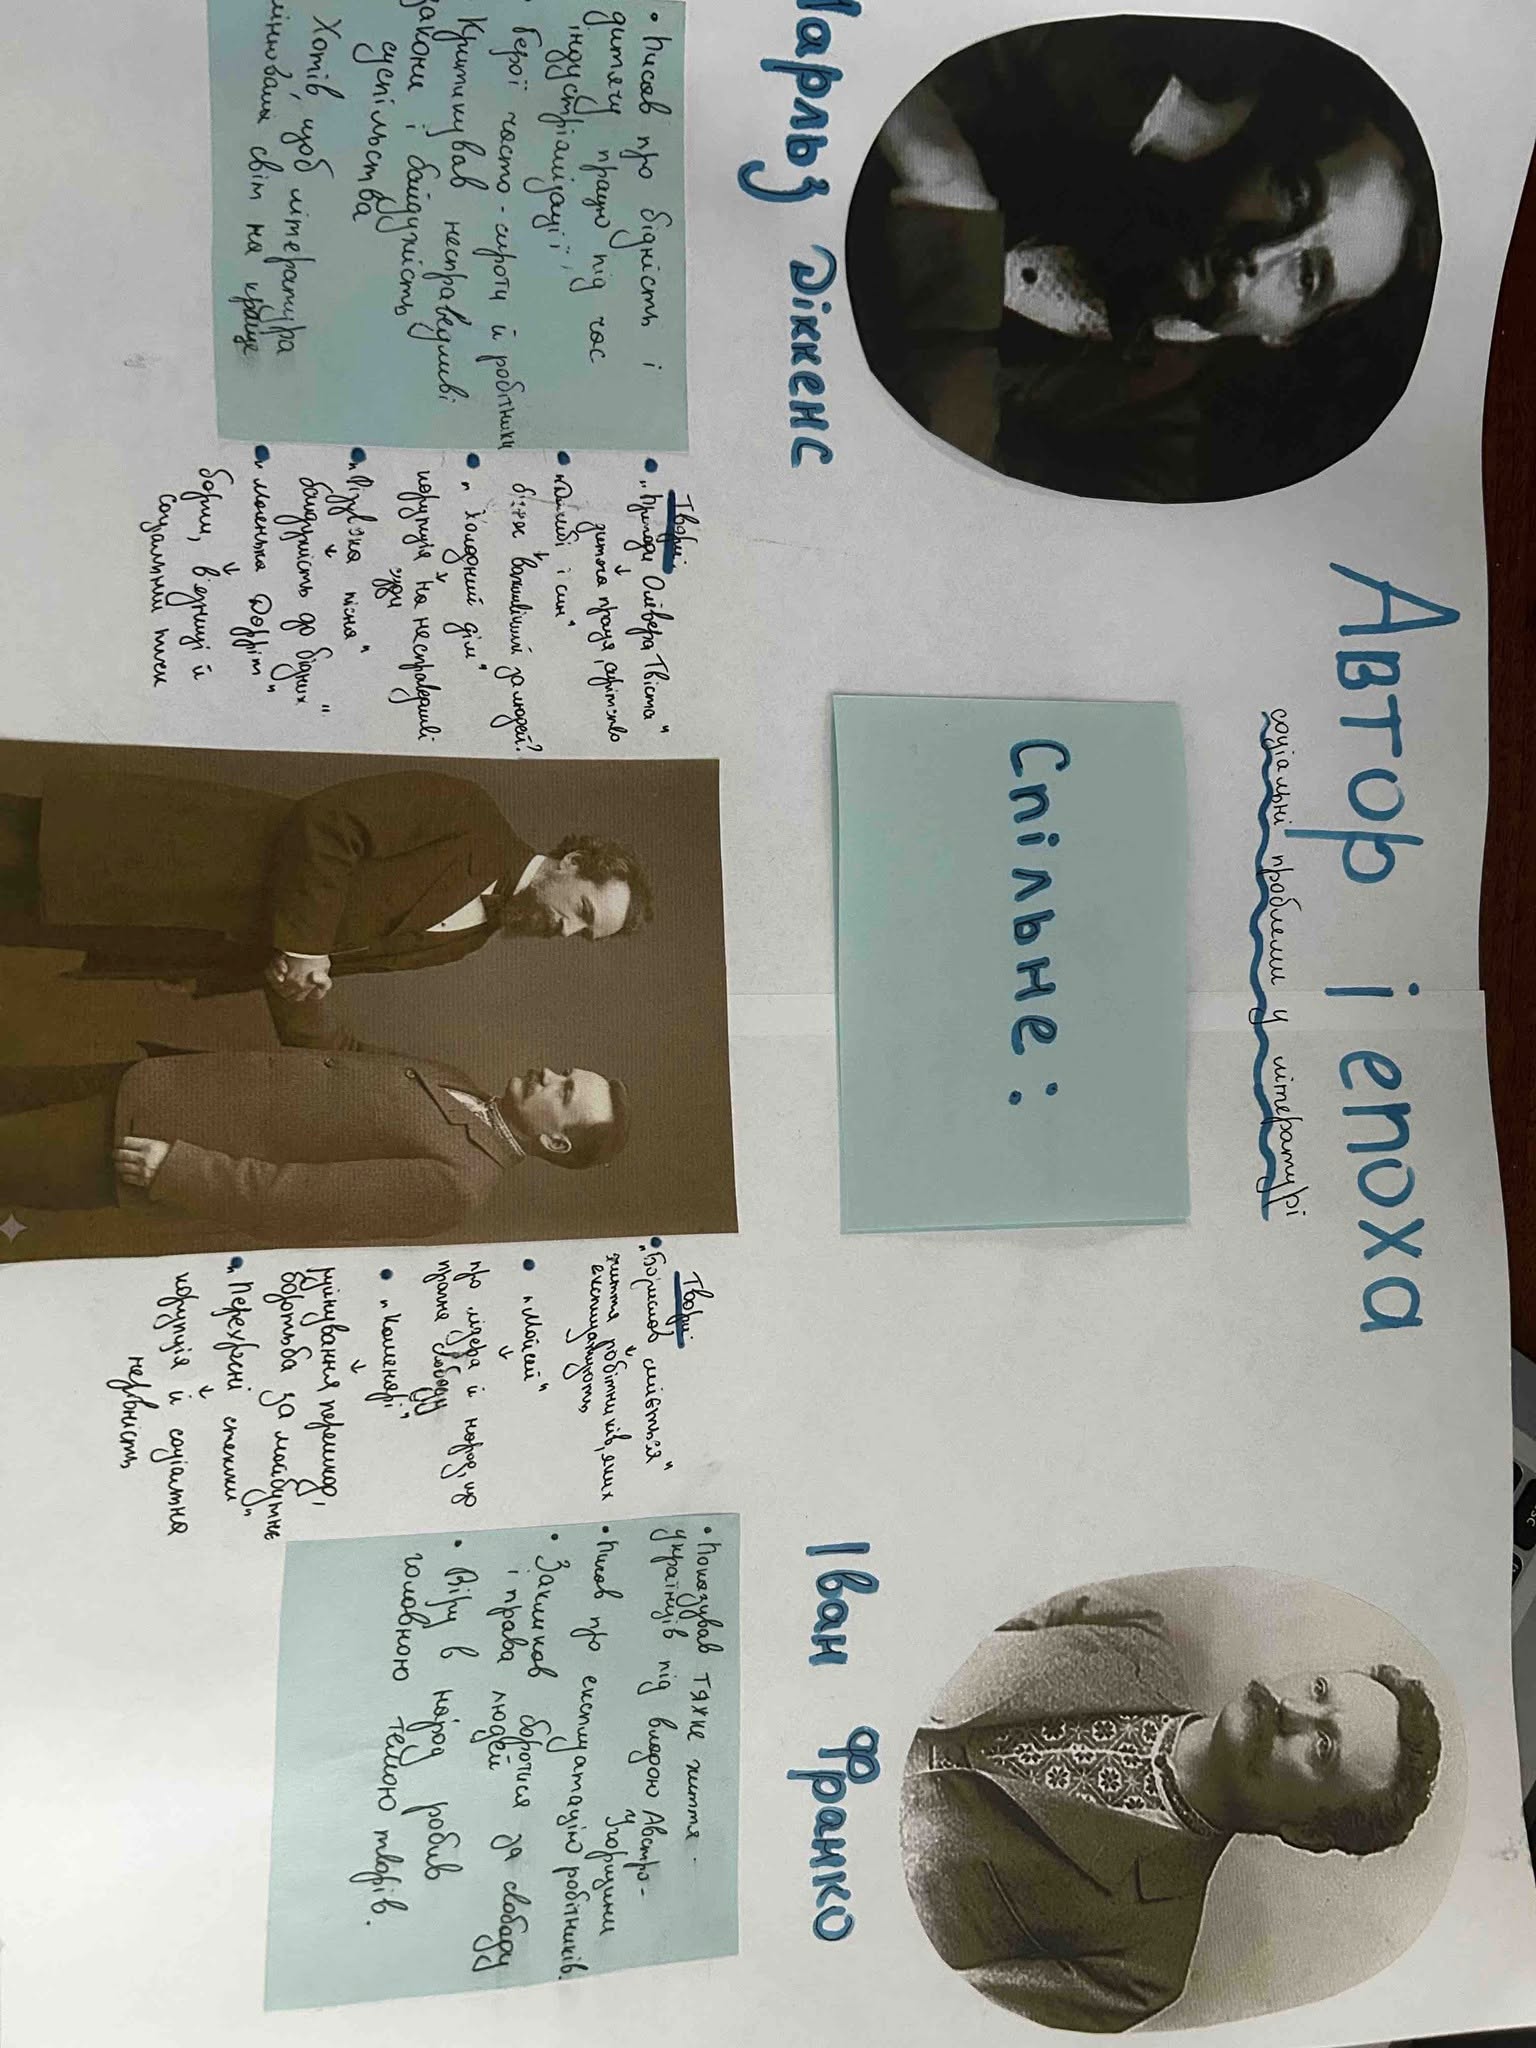 Автор і епоха
соціальні проблеми у літературі
Чарльз Діккенс
• Писав про бідність і
дитячу працю під час
індустріалізації,
герої часто - сироти й робітники
Критикував несправедливі
закони і байдужість
суспільства
Хотів, щоб література
змінювала світ на краще
Твори
• „Пригоди Олівера Твіста"
↓
дитяча праця, сирітство
• „Домбі і син"
↓
бізнес важливіший за людей?
• „Холодний дім"
↓
корупція на несправедливі
суди
• „Різдвяна пісня"
↓
байдужість до бідних
• „Маленька Дорріт"
↓
борги, в'язниці й
соціальний тиск
Спільне:
Іван Франко
Твори
• „Борислав сміється"
↓
життя робітників, яких
експлуатують
• „Мойсей"
↓
про лідера й народ, що
прагне свободу
• „Каменярі"
↓
руйнування перешкод,
боротьба за майбутнє
• „Перехресні стежки"
↓
корупція й соціальна
нерівність
• Показував тяжке життя
українців під владою Австро-
Угорщини
• Писав про експлуатацію робітників.
• Закликав боротися за свободу
і права людей
• Віру в народ робив
головною темою творів.